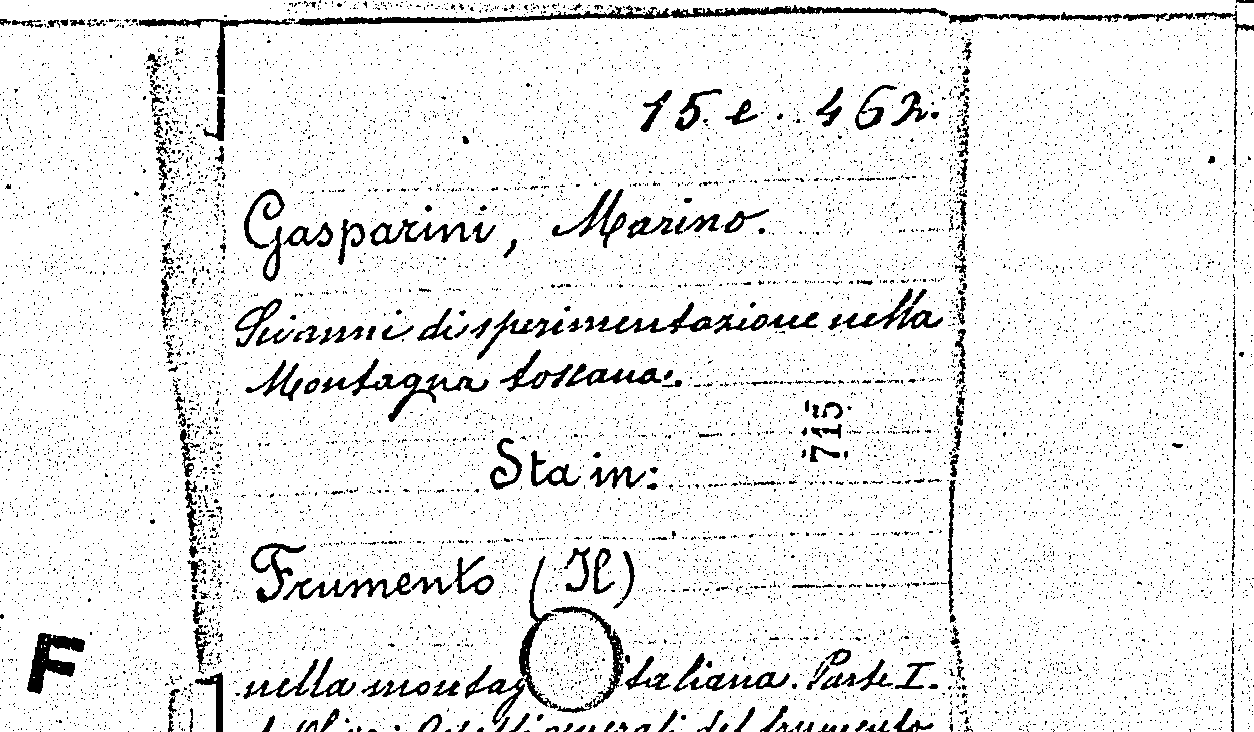 15. e. 462.
Gasparini, Marino.
Sei anni di sperimentazione nella
Montagna toscana.
715
Sta in:
Frumento (Il)
F
nella montag italiana. Parte I.
generali del frumento